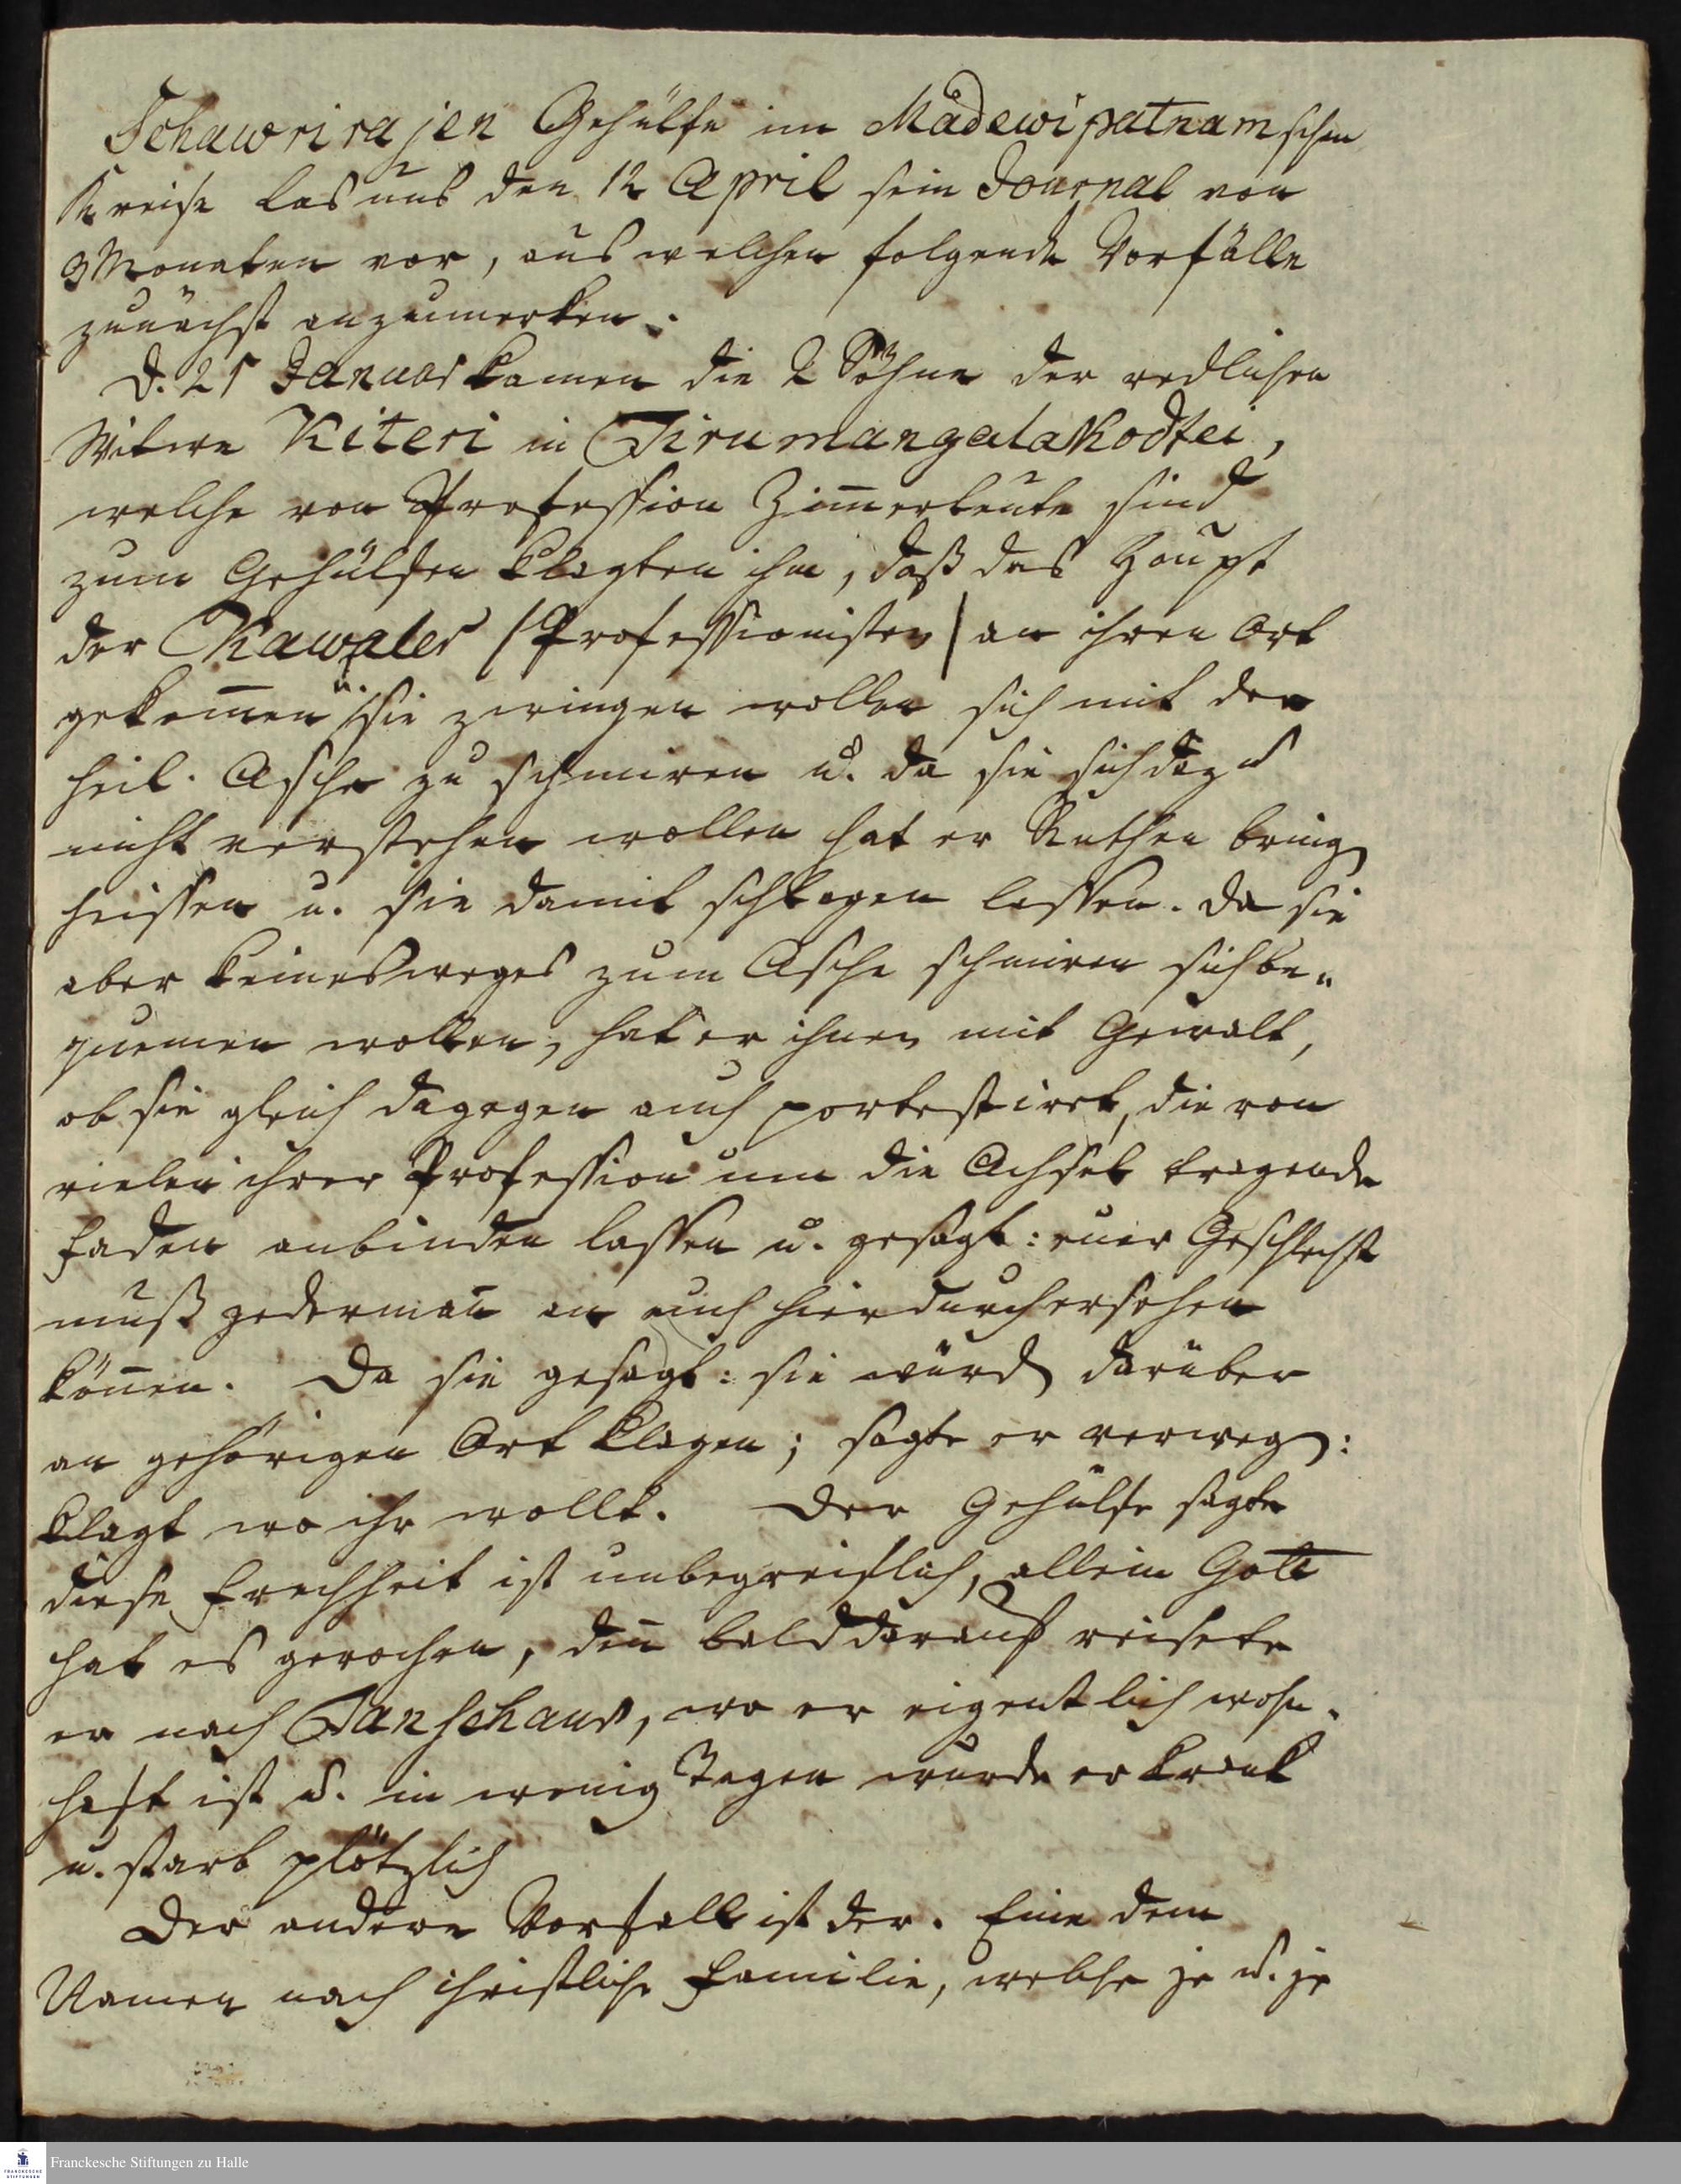 Schawrirajen Gehülfe im Mådewipatnamschen
Kreise las uns den 12 April sein Journal von
3 Monaten vor, aus welchen folgende Vorfälle
zunächst anzumerken.
D. 21 Januar kamen die 2 Söhne der redlichen
Witwe Kiteri in Tirumangalakodtei,
welche von Profession Zim̄erleute sind
zum Gehülfen klagten ihm, daß das Haupt
der /Professionisten/ an ihren Ort
gekom̄en u. sie zwingen wollen sich mit der
heil. Asche zu schmiren u. da sie sich dazu
nicht verstehen wollen hat er Ruthen bring
heissen u. sie damit schlagen lassen. Da sie
aber keinesweges zum Asche schmiren sich be„
quemen wollen, hat er ihnen mit Gewalt,
ob sie gleich dagegen auch portestiret, die von
vielen ihrer Profession um die Achsel tragende
Faden anbinden lassen u. gesagt: euer Geschlecht
muß jederman̄ an euch hierdurch ersehen
kön̄en. Da sie gesagt: sie würd darüber
an gehörigen Ort klagen; sagte er verweg:
klagt wo ihr wollt. Der Gehülfe sagte
diese Frechheit ist unbegreiflich, allein Gott
hat es gerochen, den̄ bald darauf reisete
er nach Tanschaur, wo er eigentlich wohn„
haft ist u. in wenig Tagen wurde er krank
u. starb plötzlich
Der andere Vorfall ist der. Eine dem
Namen nach christliche Familie, welche je u. je
Franckesche Stiftungen zu Halle